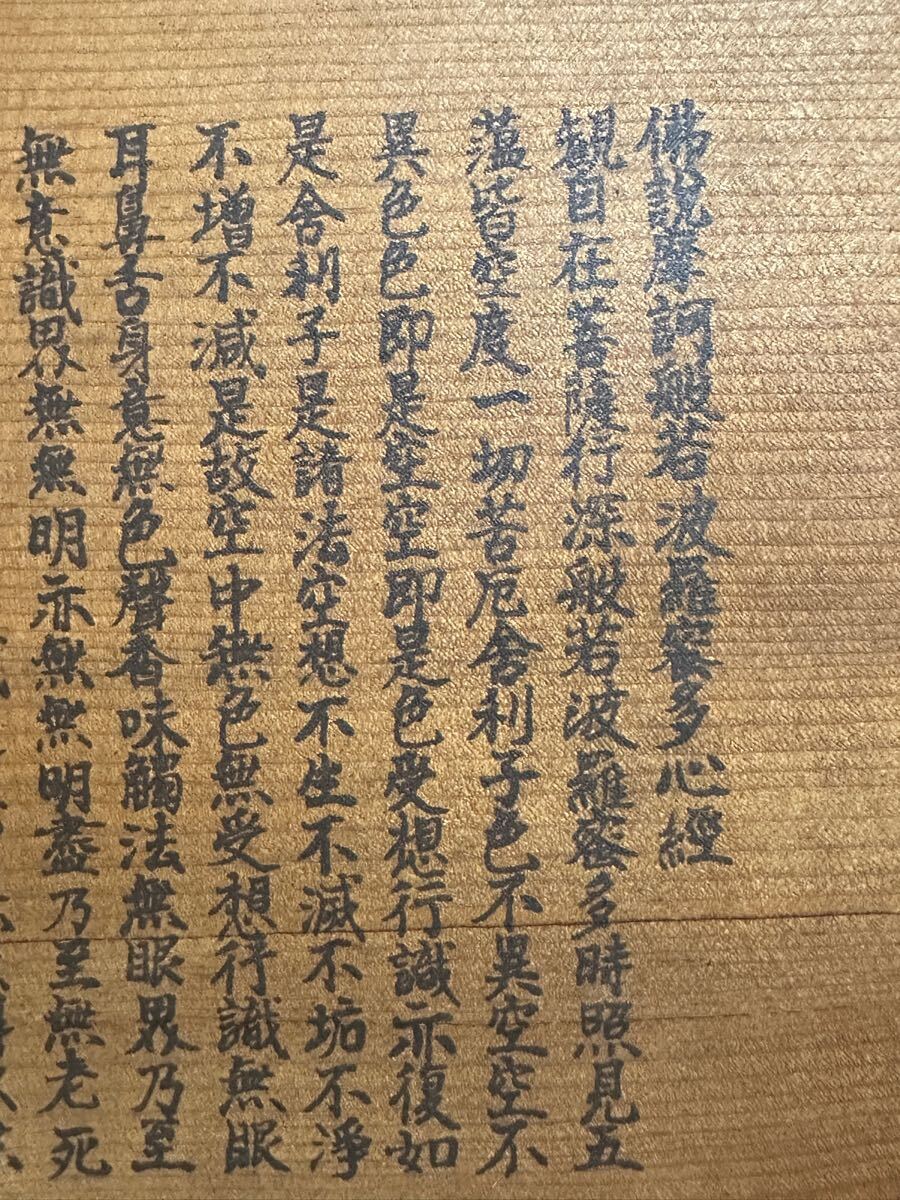 佛說摩訶般若波羅蜜多心經
観自在菩薩行深般若波羅蜜多時照見五
蘊皆空度一切苦厄舍利子色不異空空不
異色色即是空空即是色受想行識亦復如
是舍利子是諸法空想不生不滅不垢不淨
不増不減是故空中無色無受想行識無眼
耳鼻舌身意無色聲香味觸法無眼界乃至
無意識界無無明亦無無明盡乃至無老死